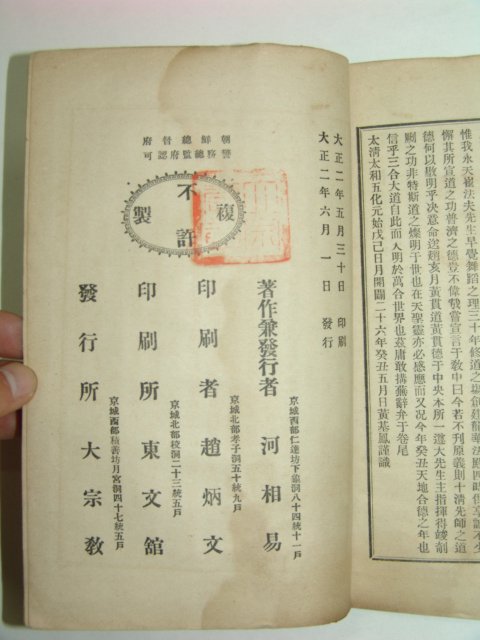 惟我永天崔法夫先生早覺舞蹈之理三十年修道之
懈其所宣道之功普濟之德豈不偉哉嘗宣言于敎中曰今若不刊原義則十淸先師之道
德何以啟明乎决意命送趙亥月黃貫道黃貫德于中央本所一遵大先生主指揮得竣剞
劂之功非特斯道之燦明于世也在天聖靈亦必感應而又况今年癸丑天地合德之年也
信乎三合大道自此而人明於萬合世界也玆庸敢搆蕪辭弁于卷尾
太淸太和五化元始戊己日月開闢二十六年癸丑五月日黃基鳳謹識
大正二年五月三十日 印刷
大正二年六月一日 發行
朝鮮總督府
警務總監府認可
不許複製
著作兼發行者 河相易
京城西部仁達坊下
八十四統十一戶
印刷者 趙炳文
京城北部孝子洞五十統九戶
印刷所 東文舘
京城北部校洞二十三統五戶
發行所 大宗敎
京城西部積善坊月宮洞四十七統五戶